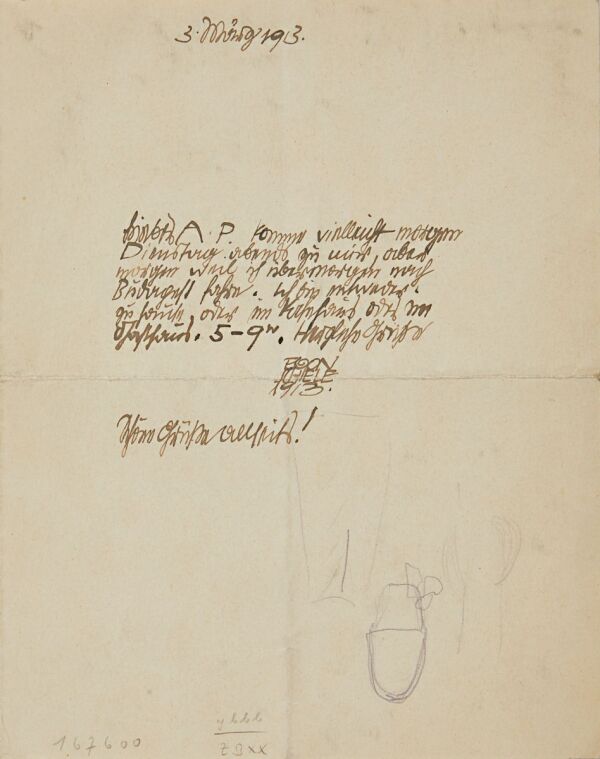 3. März 1913.
liebster A. P. komme vielleicht morgen
Dienstag abends zu mir, aber
morgen weil ich übermorgen nach
Budapest fahre. Ich bin entweder
zuhause, oder im Kafehaus oder im
Gasthaus. 5–9ʰ. Herzliche Grüße
EGON
SCHIELE
1913.
Schöne Grüße allseits!
167600